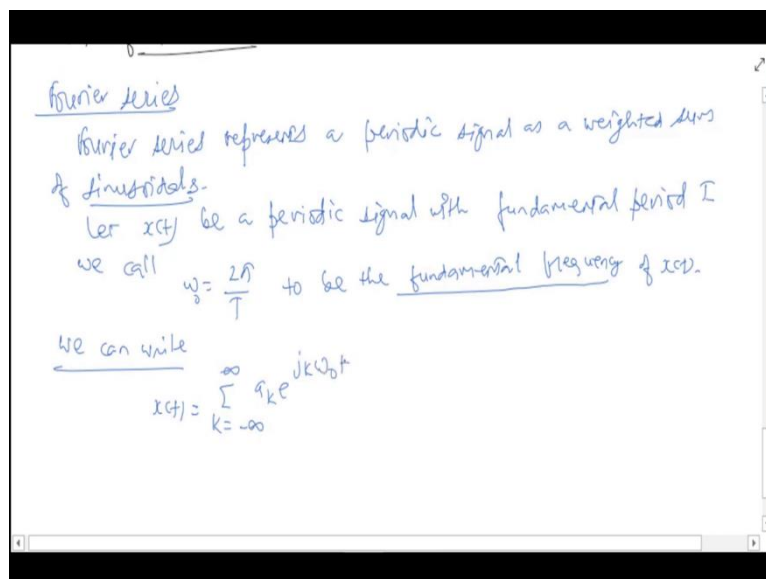 Fourier series
Fourier series represents a periodic signal as a weighted sum
of sinusoidals.
Let x(t) be a periodic signal with fundamental period T
we call ω₀ = 2π/T to be the fundamental frequency of x(t).
We can write
x(t) = ∑_{k=-∞}^{∞} a_k e^{jkω₀t}